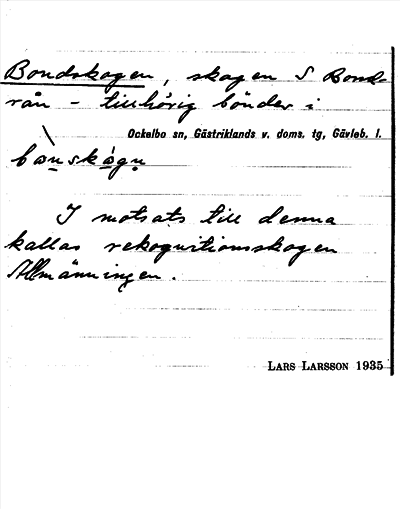 Bondskogen, skogen S Bond-
rån - tillhörig bönder i
Ockelbo sn, Gästriklands v. doms. tg, Gävleb. l.
I motsats till denna
kallas rekognitionsskogen
Allmänningen.
LARS LARSSON 1935